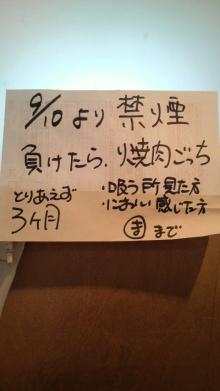 9/10より禁煙
負けたら、焼肉ごっち
とりあえず
3ヶ月
・吸う所見た方
・におい感じた方
ままで